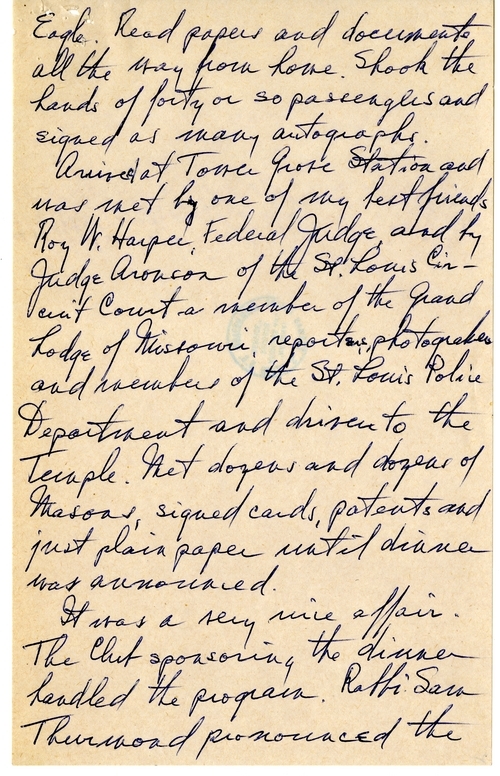 Eagle. Read papers and documents
all the way from home. Shook the
hands of forty or so passengers and
signed as many autographs.
Arrived at Tower Grove Station and
was met by one of my best friends
Roy W. Harper, Federal Judge, and by
Judge Aronson of the St. Louis Cir-
cuit Court a member of the Grand
Lodge of Missouri, reporters, photographers
and members of the St. Louis Police
Department and driven to the
Temple. Met dozens and dozens of
Masons, signed cards, patents and
just plain paper until dinner
was announced.
It was a very nice affair.
The Club sponsoring the dinner
handled the program. Rabbi Sam
Thurmond pronounced the